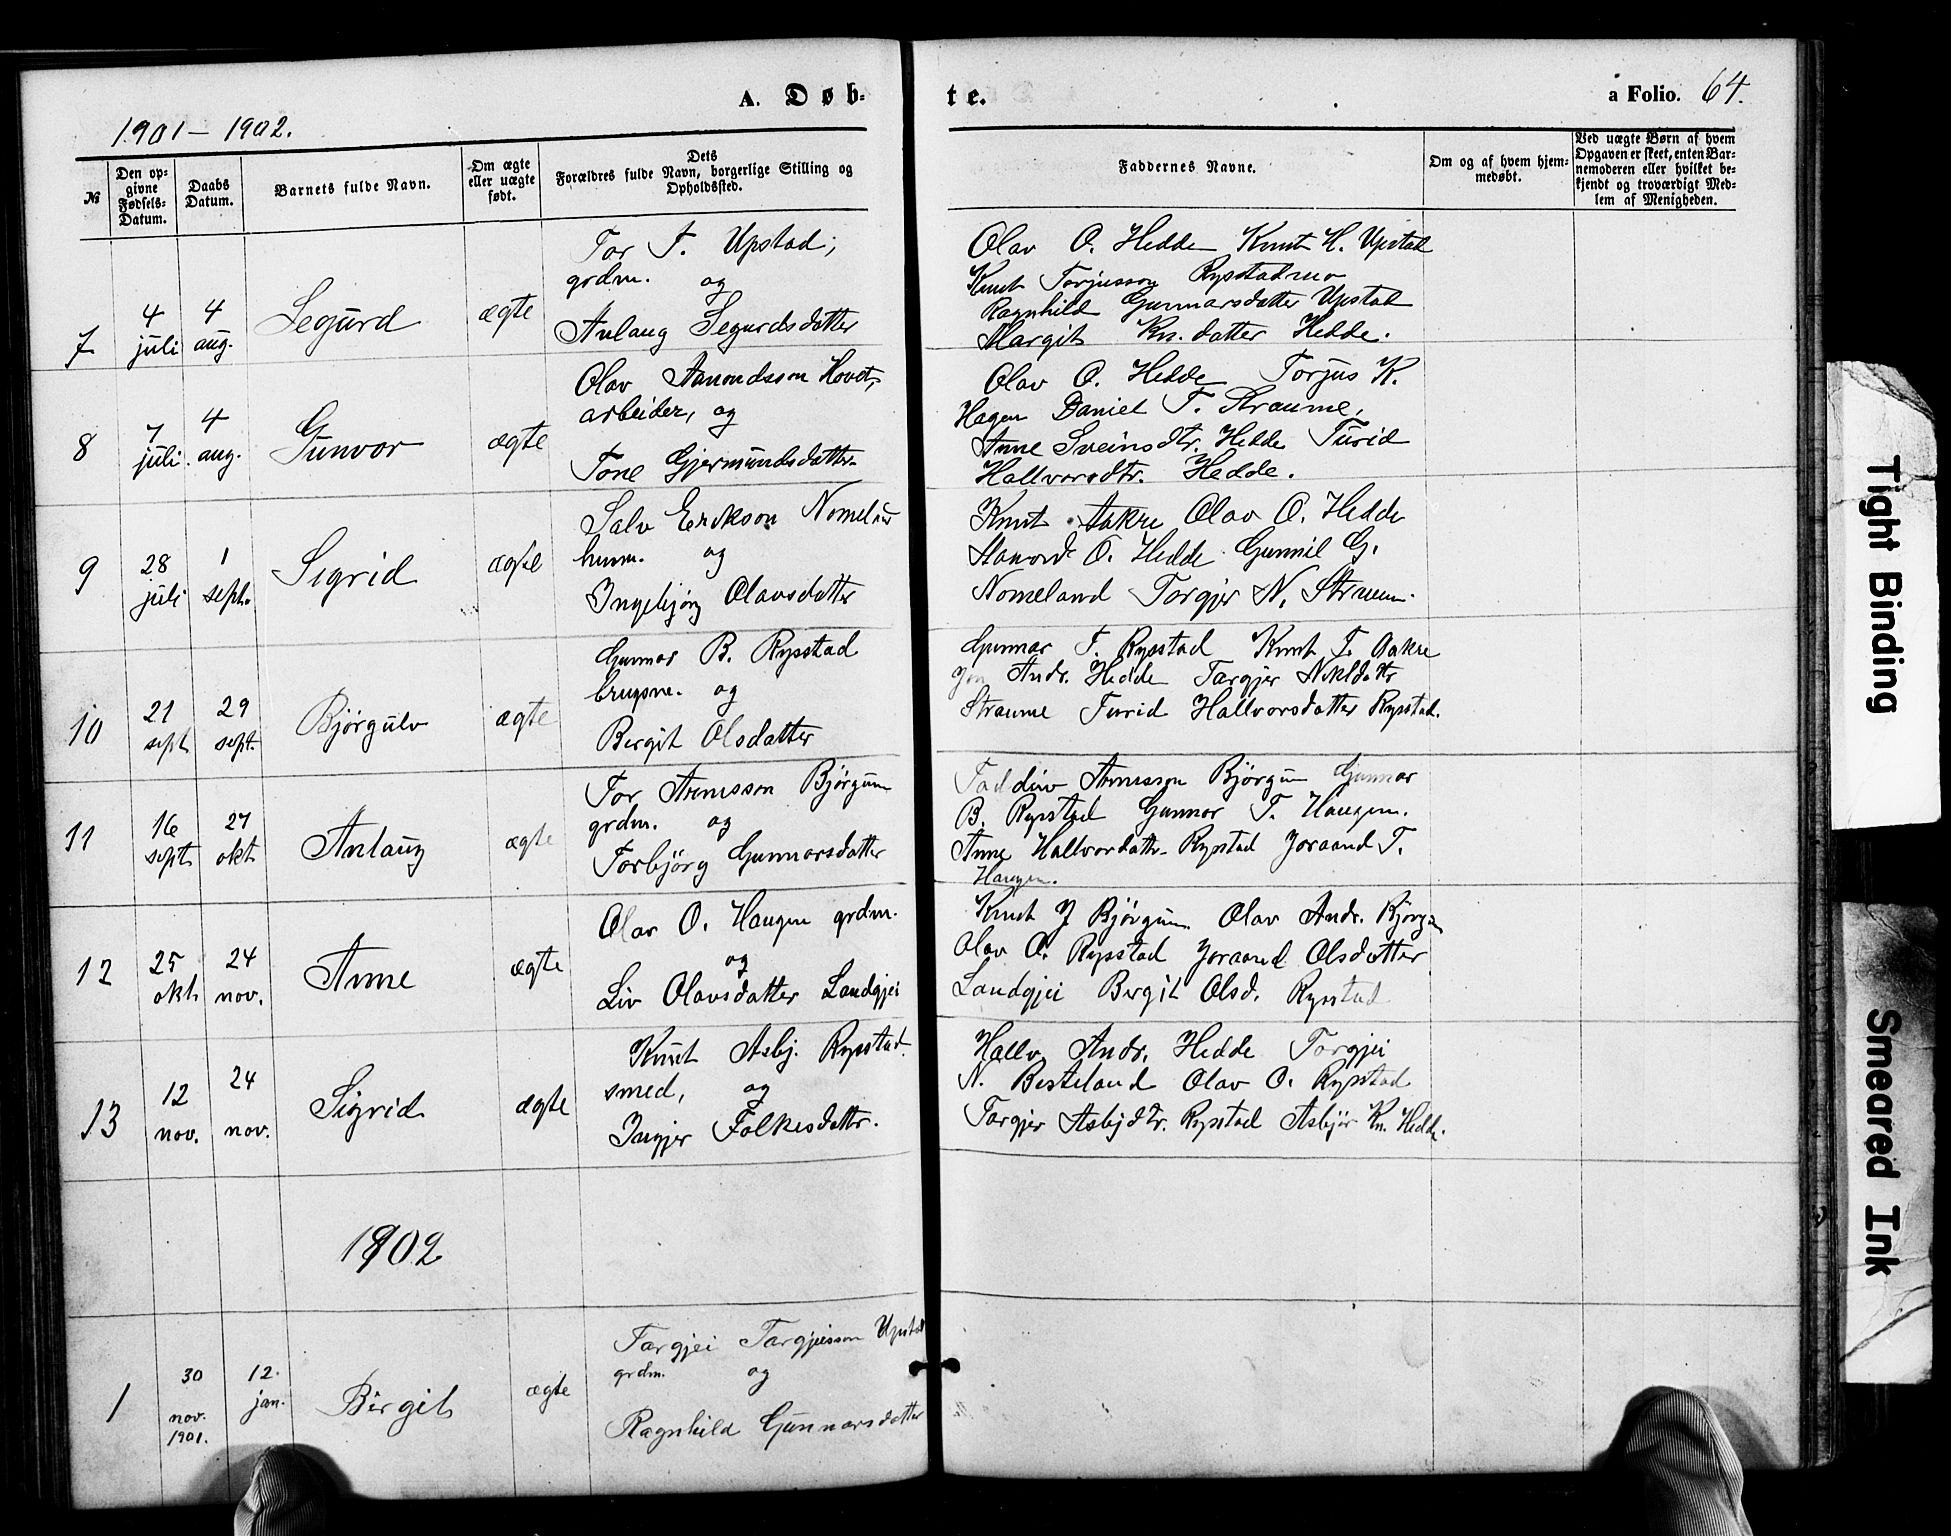 A. Døb-
te.
a Folio. 64.
1901 – 1902.
№
Den op-
givne
Fødsels-
Datum.
Daabs
Datum.
Barnets fulde Navn.
Om ægte
eller uægte
født.
Dets
Forældres fulde Navn, borgerlige Stilling og
Opholdssted.
Faddernes Navne.
Om og af hvem hjem-
medøbt.
Ved uægte Børn af hvem
Opgaven er skeet, enten Bar-
nemoderen eller hvilket be-
kjendt og troværdigt Med-
lem af Menigheden.
7
4
juli
4
aug.
Segurd
ægte
Tor T. Upstad,
grdm. og
Anlaug Segurdsdatter
Olav O. Hedde Knut H. Upstad
Knut Torjusson Rysstadmo
Ragnhild Gunnarsdatter Upstad
Margit Kn. datter Hedde.
8
7
juli.
4
aug.
Gunvor
ægte
Olav Aamondsson Hovet,
arbeider, og
Tone Gjermundsdatter
Olav O. Hedde Torjus K.
Hagen Daniel T. Straume,
Anne Sveinsdtr. Hedde Turid
Hallvorsdtr. Hedde.
9
28
juli
1
sept.
Sigrid
ægte
Salv Erikson
husm. og
Ingebjørg Olavsdatter
Knut Aakre Olav O. Hedde
Aamond O. Hedde Gunnil G.
Nomeland Torgjer N. Straum.
10
21
sept
29
sept.
Bjørgulv
ægte
Gunnar B. Rysstad
brugsm. og
Bergit Olsdatter
Gunnar T. Rysstad Knut T. Aakre
Jon Andr. Hedde Targjer
Straume Turid Hallvorsdatter Rysstad.
11
16
sept
27
okt
Anlaug
ægte
Tor Arnesson Bjørgum
grdm. og
Torbjörg Gunnarsdatter
Taddeiv Arnesson Bjørgum Gunnar
B. Rysstad Gunnar T. Haugen.
Anne Hallvordattr. Rysstad Joraand T.
Haugen.
12
25
okt
24
nov.
Anne
ægte
Olav O. Haugen grdm.
og
Liv Olavsdatter Landgjei
Knut J Bjørgum Olav Andr. Bjørgum
Olav O. Rysstad Joraand Olsdatter
Landgjei Bergit Olsd. Rysstad
13
12
nov.
24
nov.
Sigrid
ægte
Knut Asbj. Rysstad.
smed, og
Ingjer Folkesdattr.
Hallv. Andr. Hedde Torgjei
N. Besteland Olav O. Rysstad
Targjer Asbjdtr. Rysstad Asbjør Kn. Hedde.
1902
1
30
nov.
1901.
12.
jan.
Birgit
ægte
Targjei Targjeisson Upstad
grdm. og
Ragnhild Gunnarsdatter
Tight Binding
Smeared Ink